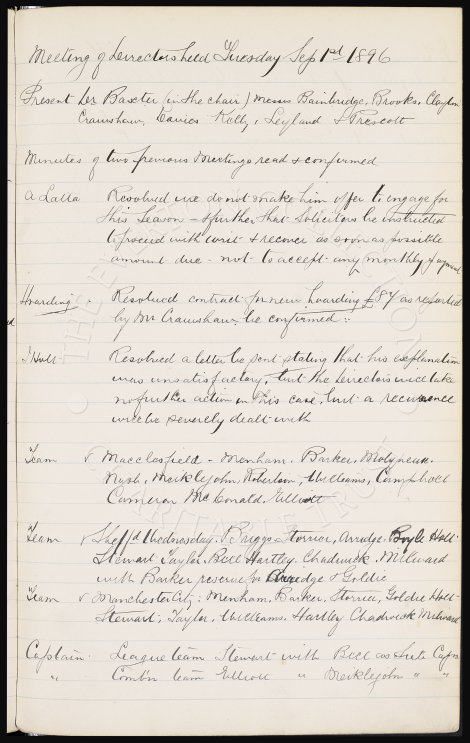 Meeting of Directors held Tuesday Sep 1st 1896
Present Dr Baxter (in the chair) Messrs Bainbridge, Brooks, Clayton
Crawshaw, Davies Kelly, Leyland & Prescott
Minutes of two previous Meetings read & confirmed
A Latta Resolved we do not make him offer to engage for
this Season - & further that Solicitors be instructed
to proceed with writ & recover as soon as possible
amount due - not to accept any monthly
Hoarding - Resolved contract for new hoarding £84 as reported
by Mr Crawshaw, be confirmed :-
J Holt Resolved a letter be sent stating that his explanation
was unsatisfactory, but the Directors will take
no further action in this case, but a recurrence
will be severely dealt with
Team v Macclesfield - Menham, Barker, Molyneux.
Nash, Meiklejohn, Robertson, Williams, Campbell
Cameron McDonald, Elliott
Team v Sheffd Wednesday, Briggs - Storrier, Arridge, Boyle Holt
Stewart, Taylor, Bell Hartley, Chadwick, Milward
with Barker reserve for Arridge & Goldie
Team v Manchester City: Menham, Barker, Storrier, Goldie Holt
Stewart, Taylor, Williams, Hartley Chadwick Milward
Captain. League team Stewart with Bell as Sub Captn
" Combn team Elliott " Meiklejohn " "
THE